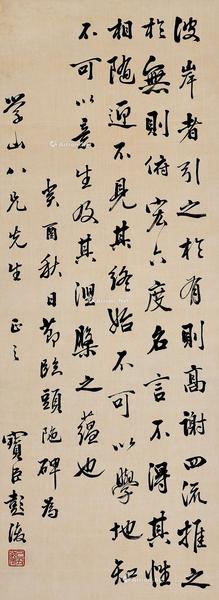 彼岸者引之於有則高謝四流推之
於無則俯宏六度名言不得其性
相隨迎不見其終始不可以學地知
不可以意生及其涅槃之蘊也
癸酉秋日節臨頭陀碑為
学山八兄先生 正之
寶臣彭浚